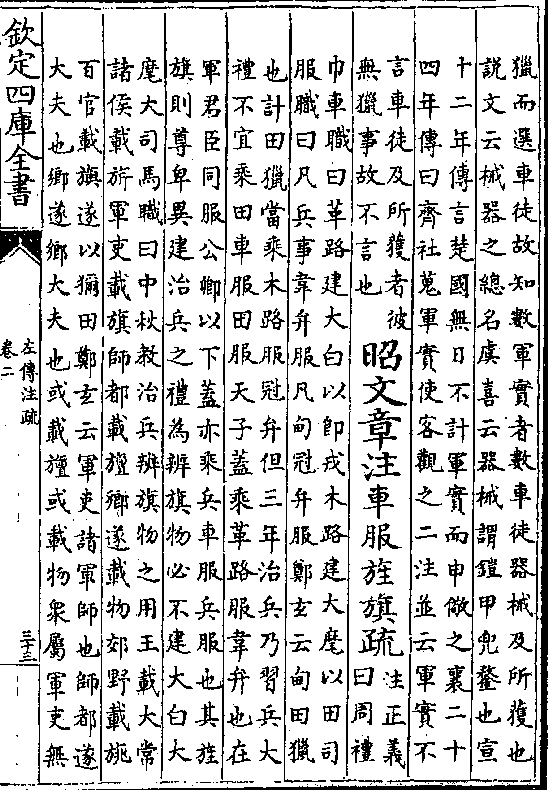 獵而選車徒故知數軍實者數車徒器械及所獲也
説文云械器之總名虞喜云器械謂鎧甲兜鍪也宣
十二年傳言楚國無日不計軍實而申儆之襄二十
四年傳曰齊社蒐軍實使客觀之二注並云軍實不
言車徒及所獲者彼
無獵事故不言也
昭文章注車服旌旗疏
注正義
曰周禮
巾車職曰革路建大白以即戎木路建大麾以田司
服職曰凡兵事韋弁服凡甸冠弁服鄭玄云甸田獵
也計田獵當乘木路服冠弁但三年治兵乃習兵大
禮不宜乘田車服田服天子蓋乘革路服韋弁也在
軍君臣同服公卿以下蓋亦乘兵車服兵服也其旌
旗則尊卑異建治兵之禮為辨旗物必不建大白大
麾大司馬職曰中秋教治兵辨旗物之用王載大常
諸侯載旂軍吏載旗師都載旜鄉遂載物郊野載旐
百官載旟遂以獮田鄭玄云軍吏諸軍師也師都遂
大夫也鄉遂鄉大夫也或載旜或載物衆屬軍吏無
欽定四庫全書
左傳注疏
卷二
三十三